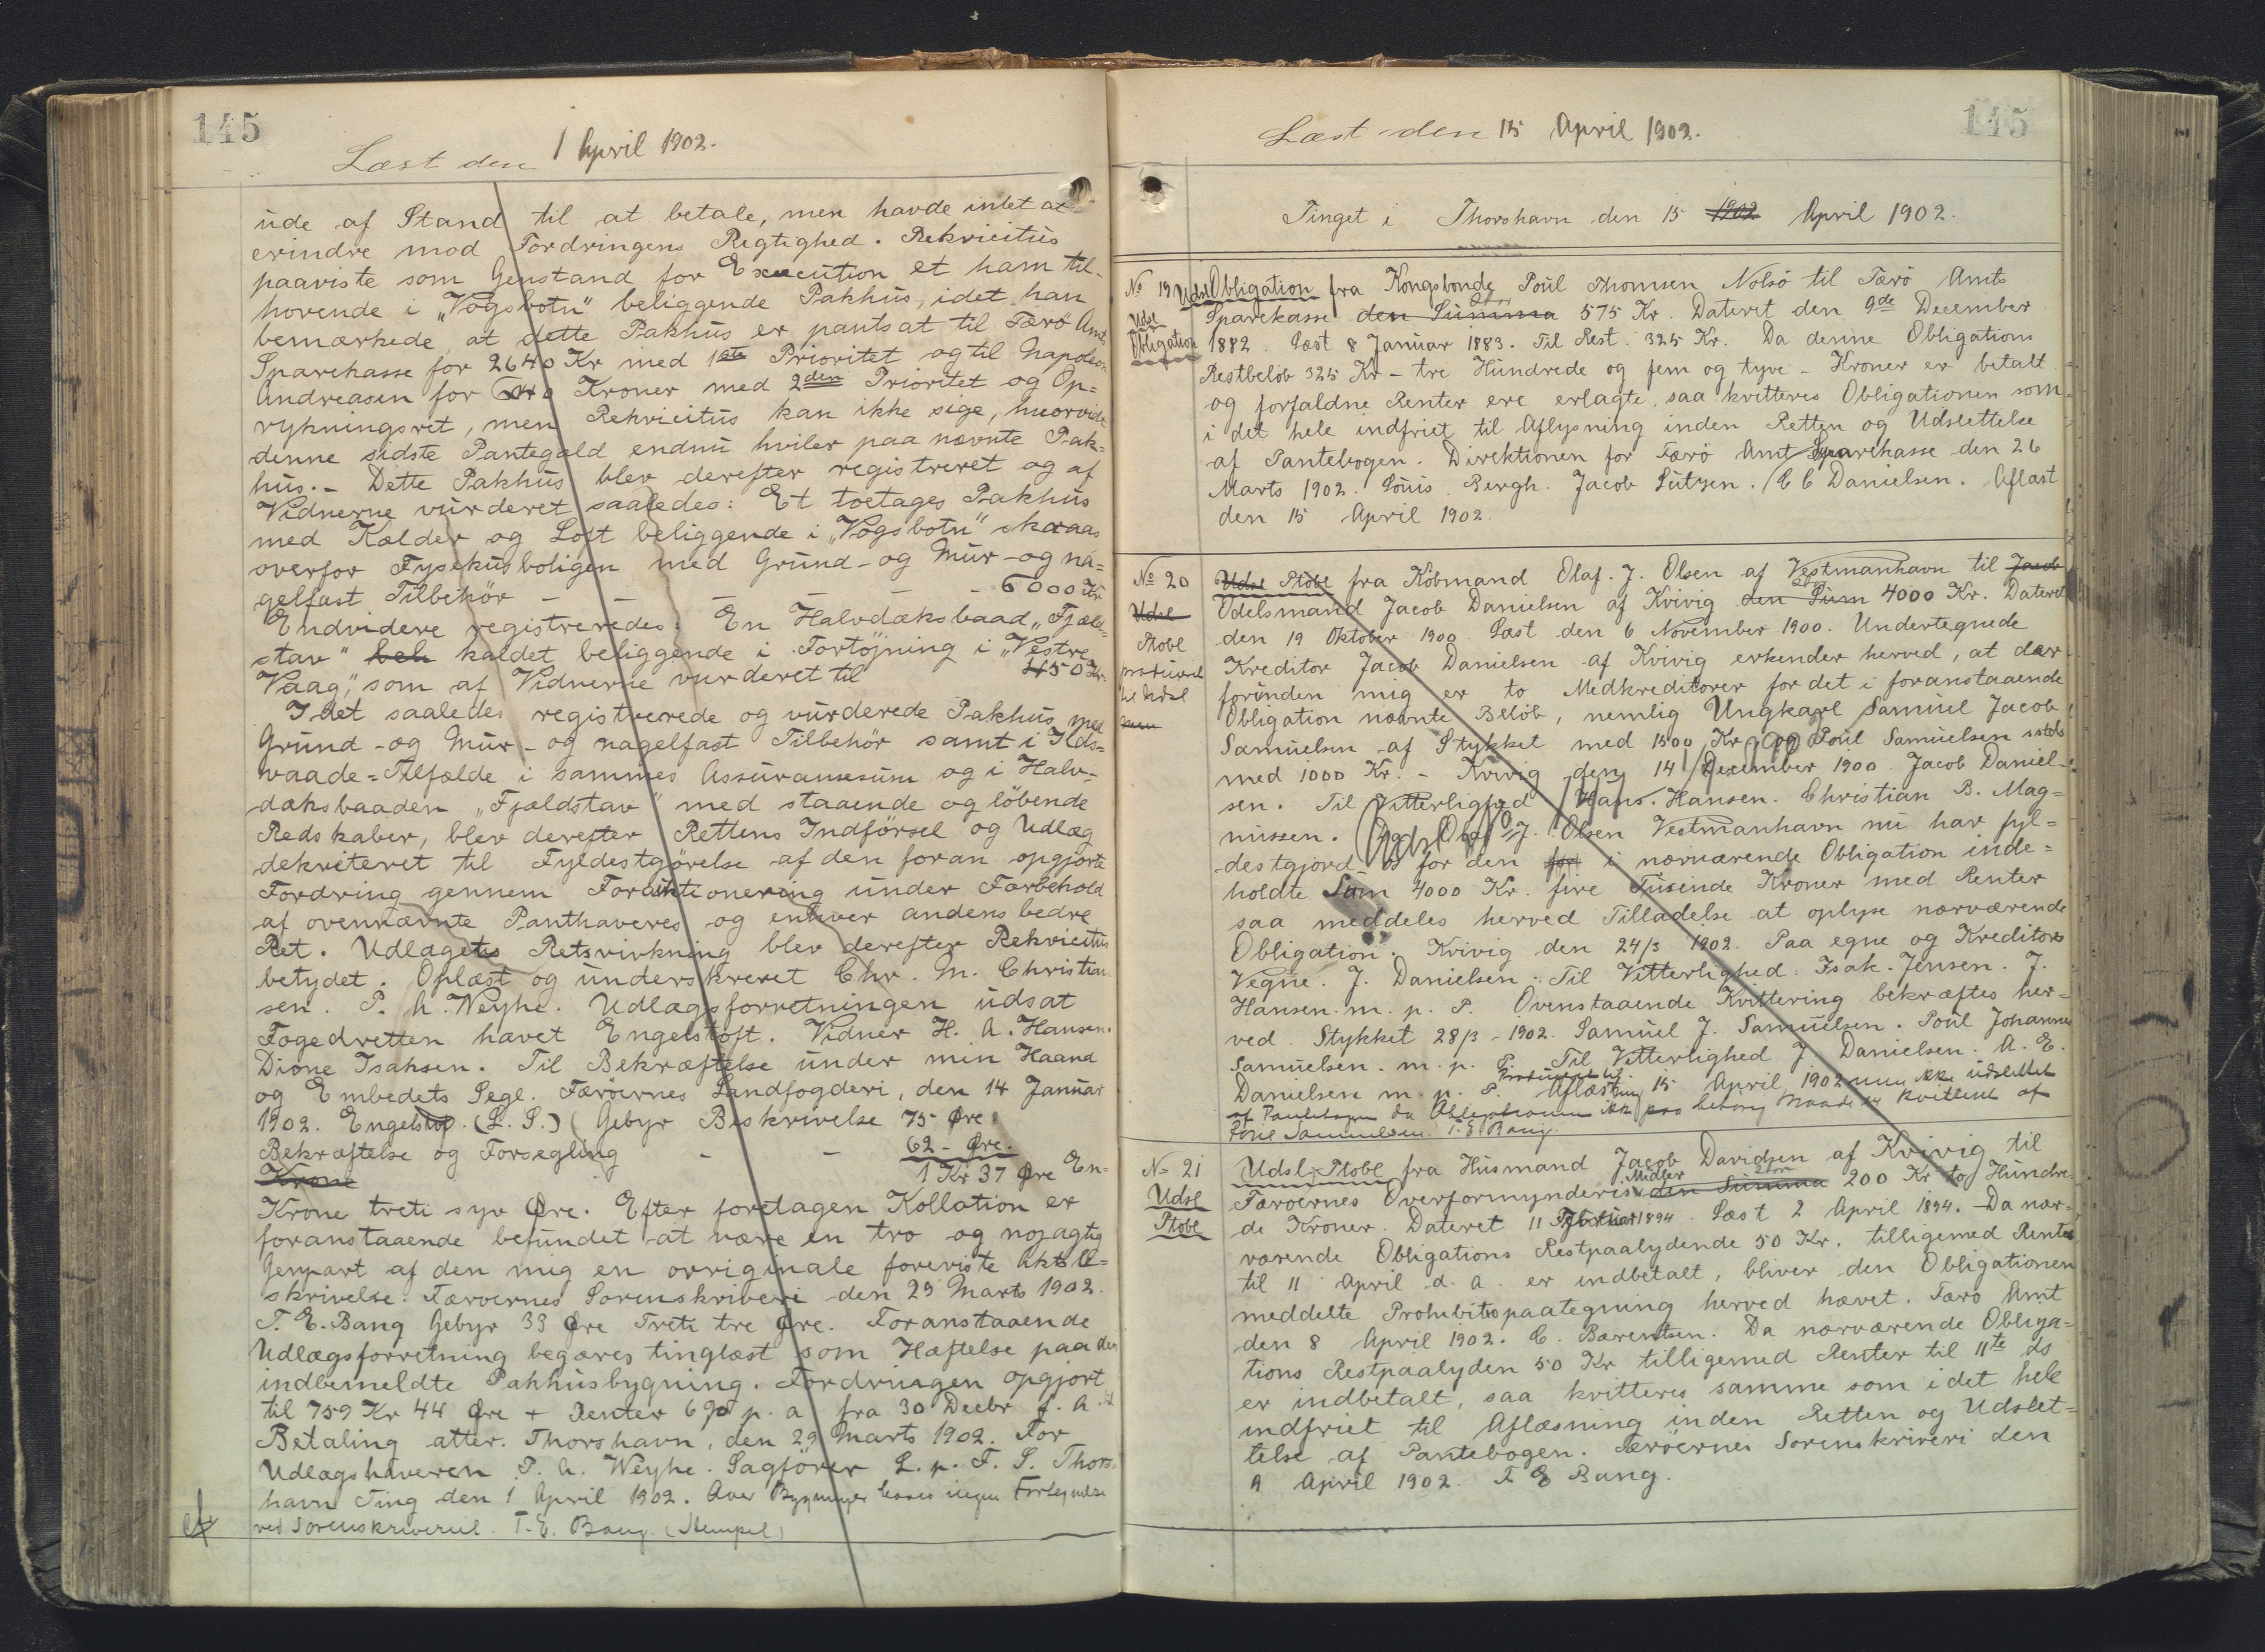 145
Læst den 1 April 1902.
ude af Stand til at betale, men havde intet at
erindre mod Fordringens Rigtighed. Rekvicitus
paaviste som Genstand for Execution et ham til-
hörende i „Vogsbotn" beliggende Pakhus, idet han
bemærkede, at dette Pakhus er pantsat til Færö Amts
Sparekasse for 2640 Kr med 1ste Prioritet og til Napoleon
Andreasen for Kroner med 2den Prioritet og Op=
rykningsret, men Rekvicitus kan ikke sige, hvorvidt
denne sidste Pantegæld endnu hviler paa nævnte Pak-
hus. - Dette Pakhus blev derefter registreret og af
Vidnerne vurderet saaledes: Et toetages Pakhus
med Kælder og Loft beliggende i „Vogsbotn" skraas
overfor Fysikusboligen med Grund- og Mur- og na=
gelfast Tilbehör - - - - - 6000 Kr
Endvidere registreredes: En Halvdæksbaad „Fjæld-
stav" beh kaldet beliggende i Fortöjning i „Vestre
Vaag", som af Vidnerne vurderet til 450 Kr.
I det saaledes registrerede og vurderede Pakhus med
Grund- og Mur- og nagelfast Tilbehör samt i Ilds=
vaade=Tilfælde i sammes Assurancesum og i Halv-
dæksbaaden „Fjældstav" med staaende og löbende
Redskaber, blev derefter Rettens Indförsel og Udlæg
dekreteret til Fyldestgörelse af den foran opgjorte
Fordring gennem Forauktionering under Forbehold
af ovennævnte Panthaveres og enhver andens bedre
Ret. Udlægets Retsvirkning blev derefter Rekvicitus
betydet. Oplæst og underskrevet Chr. M. Christian-
sen. P. A. Weyhe. Udlægsforretningen udsat
Fogedretten hævet Engelstoft. Vidner H. A. Hansen.
Dione Isaksen. Til Bekræftelse under min Haand
og Embedets Segl. Færöernes Landfogderi, den 14 Januar
1902. Engelstoft. (L. S.) Gebyr Beskrivelse 75 Øre.
Bekræftelse og Forsegling - - 62 - Øre.
Krone 1 Kr 37 Øre En-
Krone treti syv Øre. Efter foretagen Kollation er
foranstaaende befundet at være en tro og nojagtig
Genpart af den mig en orriginale foreviste Aktsbe=
skrivelse. Færoernes Sorenskriveri den 29 Marts 1902.
T. E. Bang Gebyr 33 Øre Treti tre Øre. Foranstaaende
Udlægsforretning begæres tinglæst som Hæftelse paa den
indbemeldte Pakhusbygning. Fordringen opgjort
til 759 Kr 44 Øre + Renter 6% p. a fra 30 Decbr f. A. til
Betaling atter. Thorshavn, den 29 Marts 1902. For
Udlægshaveren P. A. Weyhe. Sagförer L. p. F. S. Thors-
havn Ting den 1 April 1902. Over Bygninger haves ingen Fortegnelse
ved Sorenskriveriet. T. E. Bang. (Stempel)
145
Læst den 15 April 1902.
Tinget i Thorshavn den 15 1902 April 1902.
No 19 Udsl Obligation fra Kongsbonde Poul Thomsen Nolsö til Færö Amts
Udsl Sparekasse den Summa Stor 575 Kr. Dateret den 9de December
Obligation 1882. Læst 8 Januar 1883. Til Rest. 325 Kr. Da denne Obligations
Restbelöb 325 Kr - tre Hundrede og fem og tyve - Kroner er betalt
og forfaldne Renter ere erlagte, saa kvitteres Obligationen som
i det hele indfriet til Aflysning inden Retten og Udslettelse
af Pantebogen. Direktionen for Færö Amt Sparekasse den 26
Marts 1902. Louis Bergh. Jacob Lützen. C C Danielsen. Aflæst
den 15 April 1902.
No 20 Udsl Ptobl fra Köbmand Olaf. J. Olsen af Vestmanhavn til Jacob
Udsl Odelsmand Jacob Danielsen af Kvivig den Sum 4000 Kr. Dateret
Ptobl den 19 Oktober 1900. Læst den 6 November 1900. Undertegnede
produceret Kreditor Jacob Danielsen af Kvivig erkender herved, at der
til Udsl foruden mig er to Medkreditorer for det i foranstaaende
Obligation nævnte Belöb, nemlig Ungkarl Samuel Jacob
Samuelsen af Stykket med 1500 Kr og Poul Samuelsen sstds
med 1000 Kr. - Kvivig den 14 December 1900. Jacob Daniel-
sen. Til Vitterlighed Hans. Hansen. Christian B. Mag=
nussen. Olaf J. Olsen Vestmanhavn nu har fyl=
destgjord os for den for i nærværende Obligation inde=
holdte Sum 4000 Kr. fire Tusinde Kroner med Renter
saa meddeles herved Tilladelse at oplyse nærværende
Obligation. Kvivig den 24/3 1902. Paa egne og Kreditors
Vegne. J. Danielsen. Til Vitterlighed: Isak. Jensen. J.
Hansen. m. p. P. Ovenstaaende Kvittering bekræftes her=
ved. Stykket 28/3 - 1902. Samuel J. Samuelsen. Poul Johannes
Samuelsen. m. p. P. Til Vitterlighed J. Danielsen. A. E.
Danielsen m. p. P. Produceret til Aflæsning 15 April 1902 men ikke udslettet
af Pantebogen da Obligationen ikke paa behörig Maade er kvitteret af
Poul Samuelsen. T. E. Bang.
No 21 Udsl. Ptobl fra Husmand Jacob Davidsen af Kvivig til
Udsl Færoernes Overformynderis Midler den Summa Stor 200 Kr to Hundre
Ptobl de Kroner. Dateret 11 Februar 1894. Læst 2 April 1894. - Da nær-
værende Obligations Restpaalydende 50 Kr. tilligemed Rente
til 11 April d. a. er indbetalt, bliver den Obligationen
meddelte Prohibitspaategning herved hævet. Færö Amt
den 8 April 1902. C. Bærentsen. Da nærværende Obliga=
tions Restpaalyden 50 Kr tilligemed Renter til 11te ds
er indbetalt, saa kvitteres samme som i det hele
indfriet til Aflæsning inden Retten og Udslet=
telse af Pantebogen. Færöernes Sorenskriveri den
9 April 1902. T E Bang.